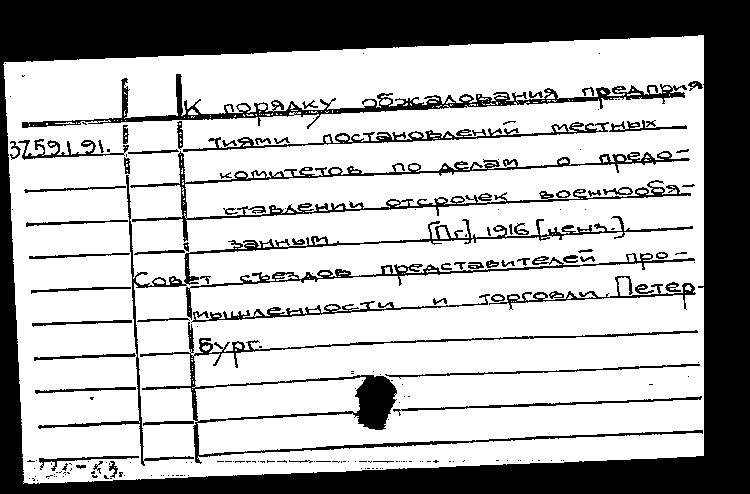 К порядку обжалования предприя
37.59.1.91. тиями постановлений местных
комитетов по делам о предо-
ставлении отсрочек военнообя-
занным. [Пг.], 1916 [ценз.].
Совет съездов представителей про-
мышленности и торговли. Петер-
бург.